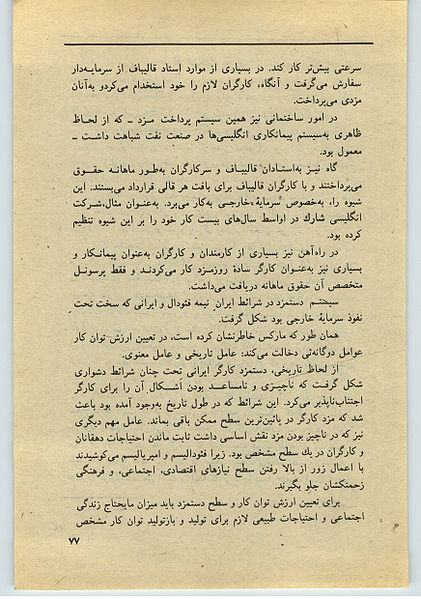 سرعتی بیش‌تر کار کند. در بسیاری از موارد استاد قالیباف از سرمایه‌دار
سفارش می‌گرفت و آنگاه، کارگران لازم را خود استخدام می‌کرد و به‌آنان
مزدی می‌پرداخت.
در امور ساختمانی نیز همین سیستم پرداخت مـزد ـ که از لحـاظ
ظاهری به‌سیستم پیمانکاری انگلیسی‌ها در صنعت نفت شباهت داشـت ـ
معمول بود.
گاه نیـز به‌استـادان قالیبـاف و سرکارگران به‌طور ماهـانـه حقـوق
می‌پرداختند و با کارگران قالیباف برای بافت هر قالی قرارداد می‌بستند. این
شیوه را، به‌خصوص سرمایهٔ خارجی به‌کار می‌برد. به‌عنوان مثال، شـرکت
انگلیسی شارك در اواسط سال‌های بیست کار خود را بر این شیوه تنظیم
کرده بود.
در راه‌آهن نیز بسیاری از کارمندان و کارگران به‌عنوان پیمانکـار و
بسیاری نیز به‌عنـوان کارگر سادهٔ روزمـزد کار می‌کردنـد و فقط پرسـونـل
متخصص آن حقوق ماهانه دریافت می‌داشت.
سیستم دستمزد در شرائط ایران نیمه فئودال و ایرانی که سخت تحت
نفوذ سرمایهٔ خارجی بود شکل گرفت.
همان طور که مارکس خاطرنشان کرده است، در تعیین ارزش توان کار
عوامل دوگانه‌ئی دخالت می‌کند: عامل تاریخی و عامل معنوی.
از لحاظ تاریخی، دستمزد کارگر ایرانی تحت چنان شرائط دشواری
شکل گرفت که ناچیـزی و نامساعـد بودن اشـکال آن را برای کارگر
اجتناب‌ناپذیر می‌کرد. این شرائط که در طول تاریخ به‌وجود آمده بود باعث
شد که مزد کارگر در پائین‌ترین سطح ممکن باقی بماند. عامل مهم دیگری
نیز که در ناچیز بودن مزد نقش اساسی داشت ثابت ماندن احتیاجات دهقانان
و کارگران در یك سطح مشخص بود. زیرا فئودالیسم و امپریالیسم می‌کوشیدند
با اعمال زور از بالا رفتن سطح نیازهای اقتصادی، اجتماعی، و فرهنگی
زحمتکشان جلو بگیرند.
برای تعیین ارزش توان کار و سطح دستمزد باید میزان مایحتاج زندگی
اجتماعی و احتیاجات طبیعی لازم برای تولید و بازتولید توان کار مشخص
۷۷